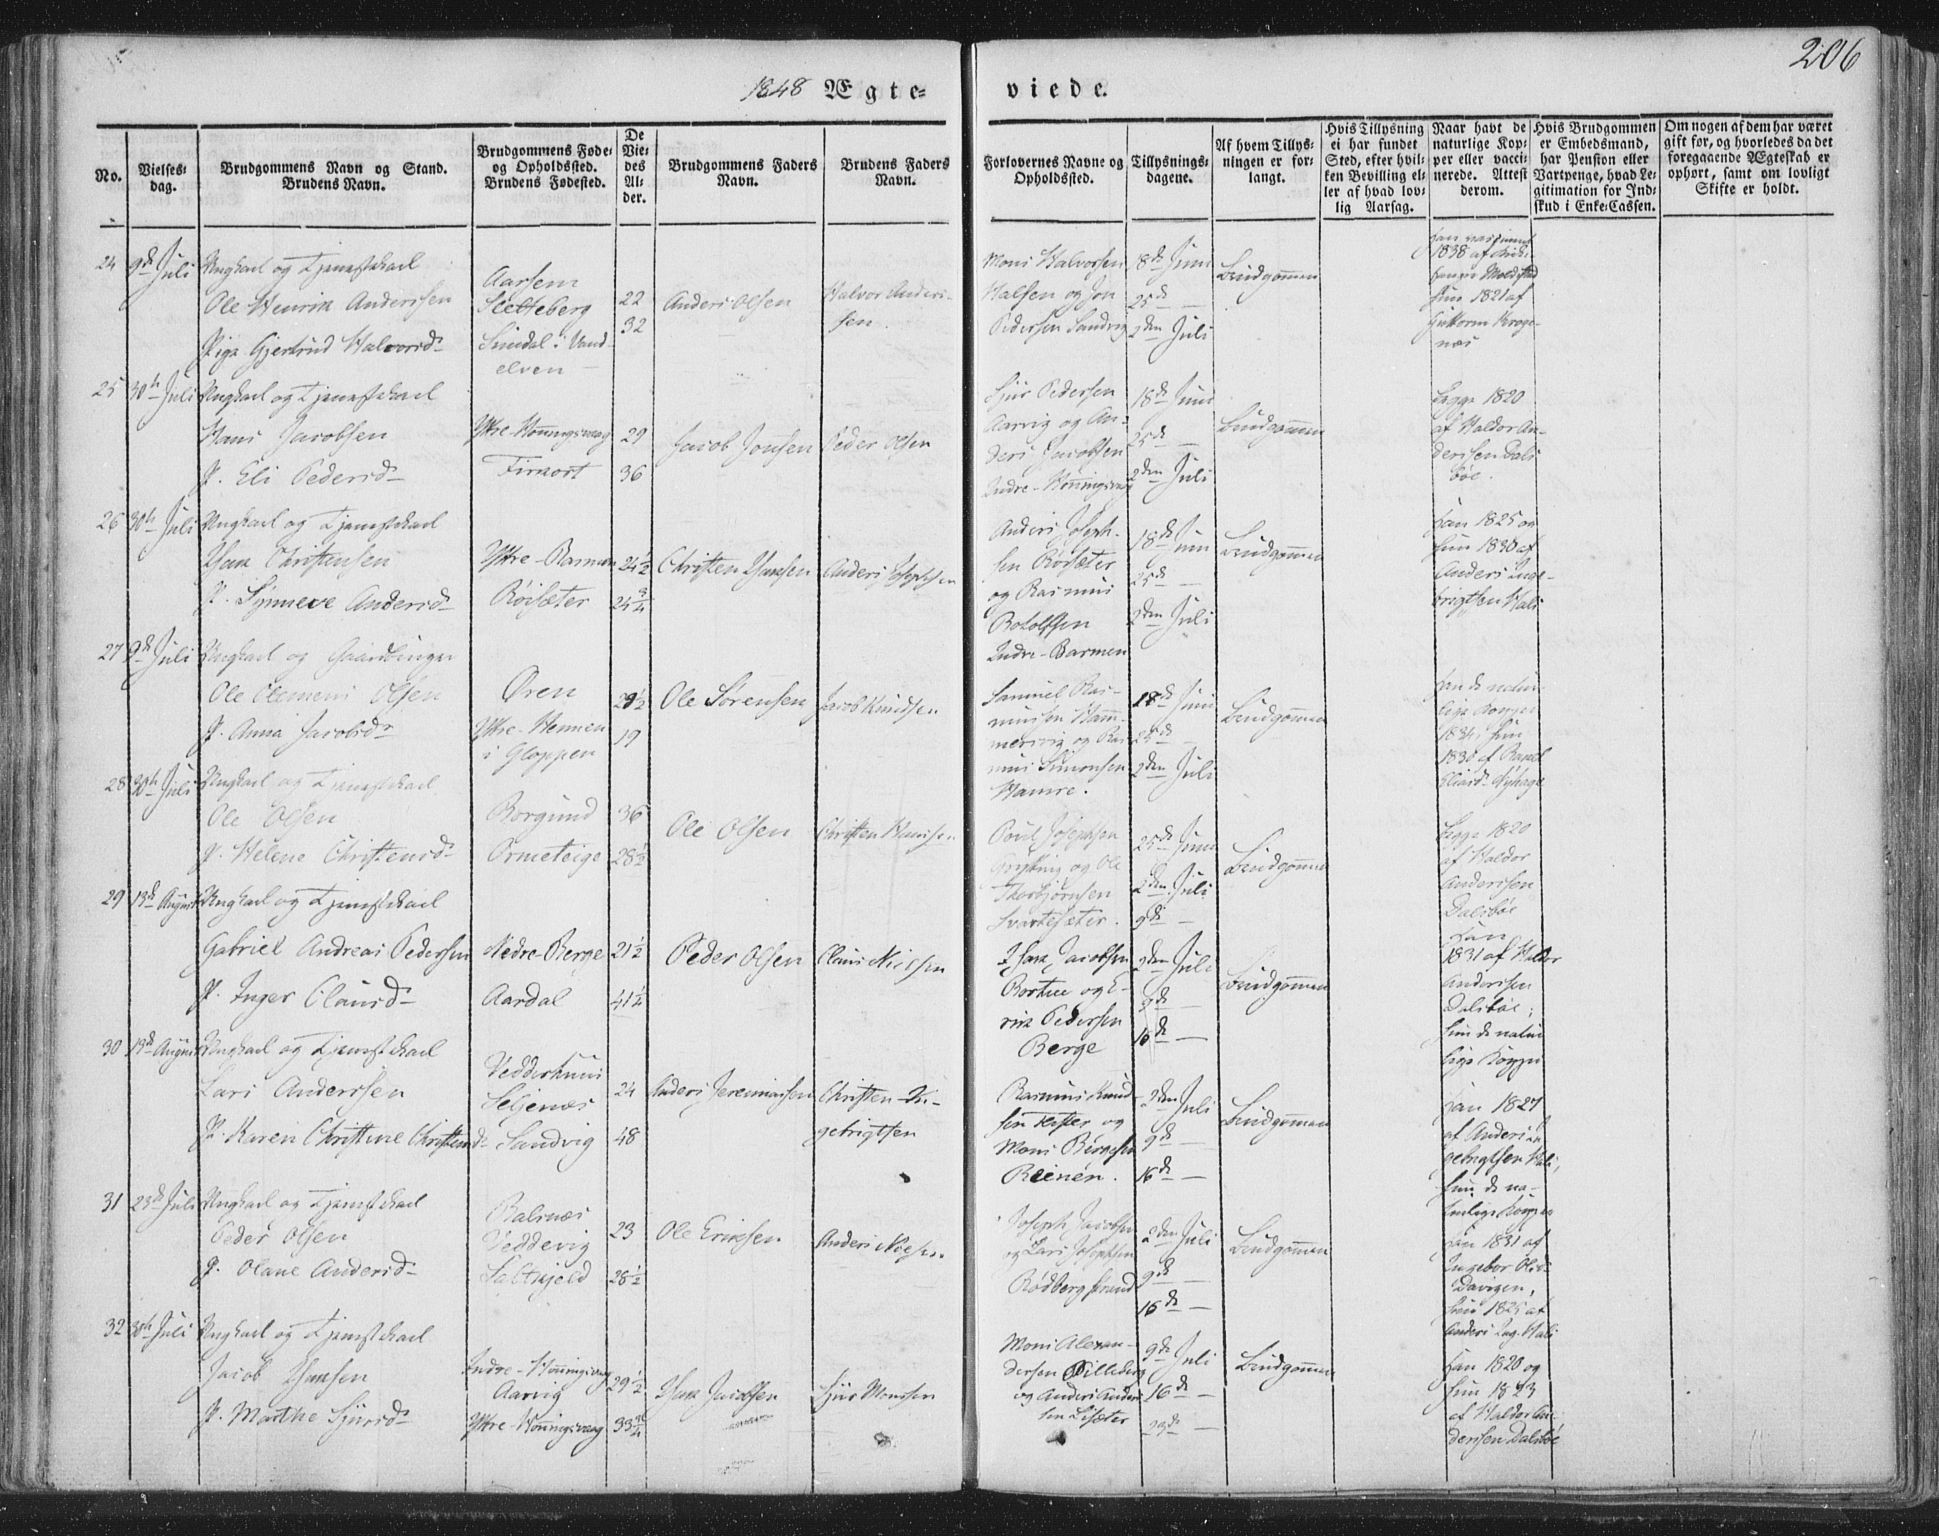 206
1848 Ægte- viede.
No.
Vielses-
dag.
Brudgommens Navn og Stand.
Brudens Navn.
Brudgommens Føde-
og Opholdssted.
Brudens Fødested.
De
Vie-
des
Al-
der.
Brudgommens Faders
Navn.
Brudens Faders
Navn.
Forlovernes Navne og
Opholdssted.
Tillysnings-
dagene.
Af hvem Tillys-
ningen er for-
langt.
Hvis Tillysning
ei har fundet
Sted, efter hvil-
ken Bevilling el-
ler af hvad lov-
lig Aarsag.
Naar havt de
naturlige Kop-
per eller vacci-
nerede. Attest
derom.
Hvis Brudgommen
er Embedsmand,
har Pension eller
Vartpenge, hvad Le-
gitimation for Ind-
skud i Enke-Cassen.
Om nogen af dem har været
gift før, og hvorledes da det
foregaaende Ægteskab er
ophørt, samt om lovligt
Skifte er holdt.
24 9de Juli Ungkarl og Tjenestekarl
Ole Henrik Andersen
Pige Gjertrud Halvorsd.
Aarsem
Sletteberg
Sundal i Vand-
elven
22
32
Anders Olsen
Halvor Anders-
sen
Mons Halvorsen
Halsen og Jon
Pedersen Sandvig
18de Juni
25de —
2den Juli
Brudgommen
1838 af Kirke-
sanger Moldestad
hun 1821 af
Guttorm Kroge-
næs
25 30te Juli Ungkarl og Tjenestekarl
Hans Jacobsen
P. Eli Pedersd.
Yttre-Honningsvaag
Firnort
29
36
Jacob Jonsen
Peder Olsen
Sjur Pedersen
Aarvig og An-
ders Jacobsen
Indre-Honningsvaag
18de Juni
25de —
2den Juli
Brudgommen
begge 1820
af Haldor An-
dersen Dals-
bøe.
26 30te Juli Ungkarl og Tjenestekarl
Thom Christensen
P. Synneve Andersd.
Yttre-Barmen
Røisæter
24½
24¾
Christen Thomsen
Anders Josephsen
Anders Joseph-
sen Røisæter
og Rasmus
Botolfsen
Indre-Barmen
18de Juni
25de —
2den Juli
Brudgommen
han 1825 og
hun 1830 af
Anders Inge-
brigtsen Hals
27 9de Juli Ungkarl og Gaardbruger
Ole Clemens Olsen
P. Anna Jacobsd.
Øren
Yttre-Hennen
i Gloppen
29½
19
Ole Sørensen
Jacob Knudsen
Samuel Ras-
mussen Ham-
mersvig og Ras-
mus Simonsen
Hamre.
18de Juni
25de —
2den Juli
Brudgommen
han de natur-
lige Kopper
1834, hun
1830 af Rasmus
28 30te Juli Ungkarl og Tjenestekarl
Ole Olsen
P. Helene Christensd.
Borgund
Ormeteige
36
28½
Ole Olsen
Christen Hansen
Poul Josephsen
Gryting og Ole
Thorbjørnsen
Svartesæter.
25de Juni
2den Juli
9de —
Brudgommen
begge 1820
af Haldor
Andersen
Dalsbøe
29 13de August Ungkarl og Tjenestekarl
Gabriel Andreas Pedersen
P. Inger Clausd.
Nedre-Berge
Aardal
21½
41¼
Peder Olsen
Claus Nielsen
Thom Jacobsen
Bortne og E-
rik Pedersen
Berge
2den Juli
9de —
16de —
Brudgommen
han
1831 af Haldor
Andersen
Dalsbøe;
hun de natur-
lige Kopper
30 13de August Ungkarl og Tjenestekarl
Lars Andersen
P. Karen Christine Christensd.
Vedderhuus
Seljenæs
Sandvig
24
48
Anders Jeremiasen
Christen In-
gebrigtsen
Rasmus Knud-
sen Refsæter og
Mons Børgesen
Reenen.
2den Juli
9de —
16de —
Brudgommen
han 1827
af Anders In-
gebrigtsen Hals,
hun de na-
turlige Kopper
31 23de Juli Ungkarl og Tjenestekarl
Peder Olsen
P. Olane Andersd.
Balsnæs
Veddevig
Salthjeld
23
28½
Ole Eriksen
Anders Nielsen
Joseph Jacobsen
og Lars Josephsen
Rødbergstrand
2den Juli
9de —
16de —
Brudgommen
han 1831 af
Ingebor Olsd.
Davigen,
hun 1825 af
Anders Ing. Hals
32 30te Juli Ungkarl og Tjenestekarl
Jacob Thomsen
P. Marthe Sjursd.
Indre-Honningsvaag
Aarvig
Yttre-Honningsvaag
29½
33¾
Thom Jacobsen
Sjur Monssen
Mons Alexan-
dersen Lilleberg
og Anders Anders-
sen Lisæter
9de Juli
16de —
23de —
Brudgommen
han 1820 og
hun 1823
af Haldor An-
dersen Dalsbøe